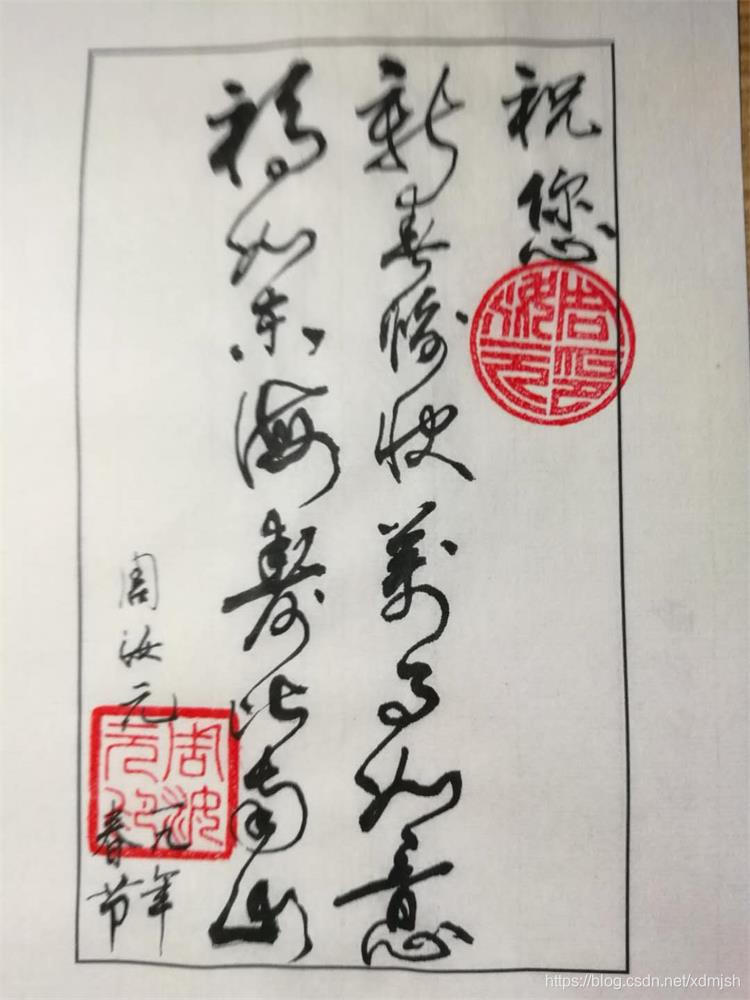 祝您
新春愉快萬事如意
福如东海寿比南山
周汝元
一九年
春节
周汝元印
周汝元印
https://blog.csdn.net/xdmjsh